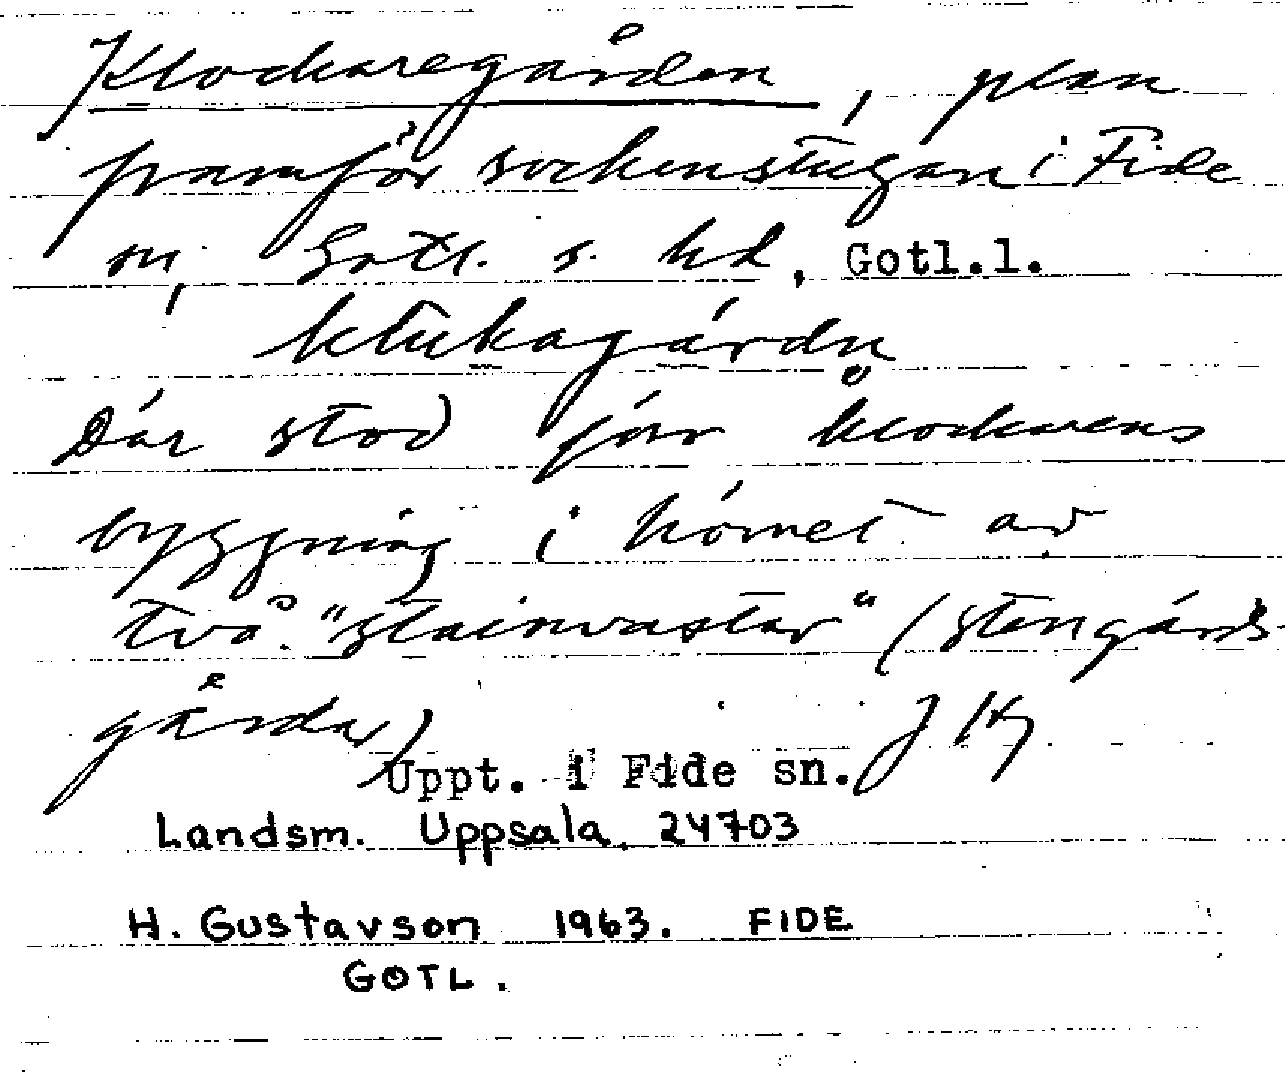 Klockaregården, plan
framför sockenstugan i Fide
sn, Gotl. s. hd, Gotl.l.
klukagárdn
Där stod förr klockarens
byggning i hörnet av
två "stainvastar" (stengärds-
gårdar) J Kg
Uppt. i Fide sn.
Landsm. Uppsala 24703
H. Gustavson 1963. FIDE
GOTL.